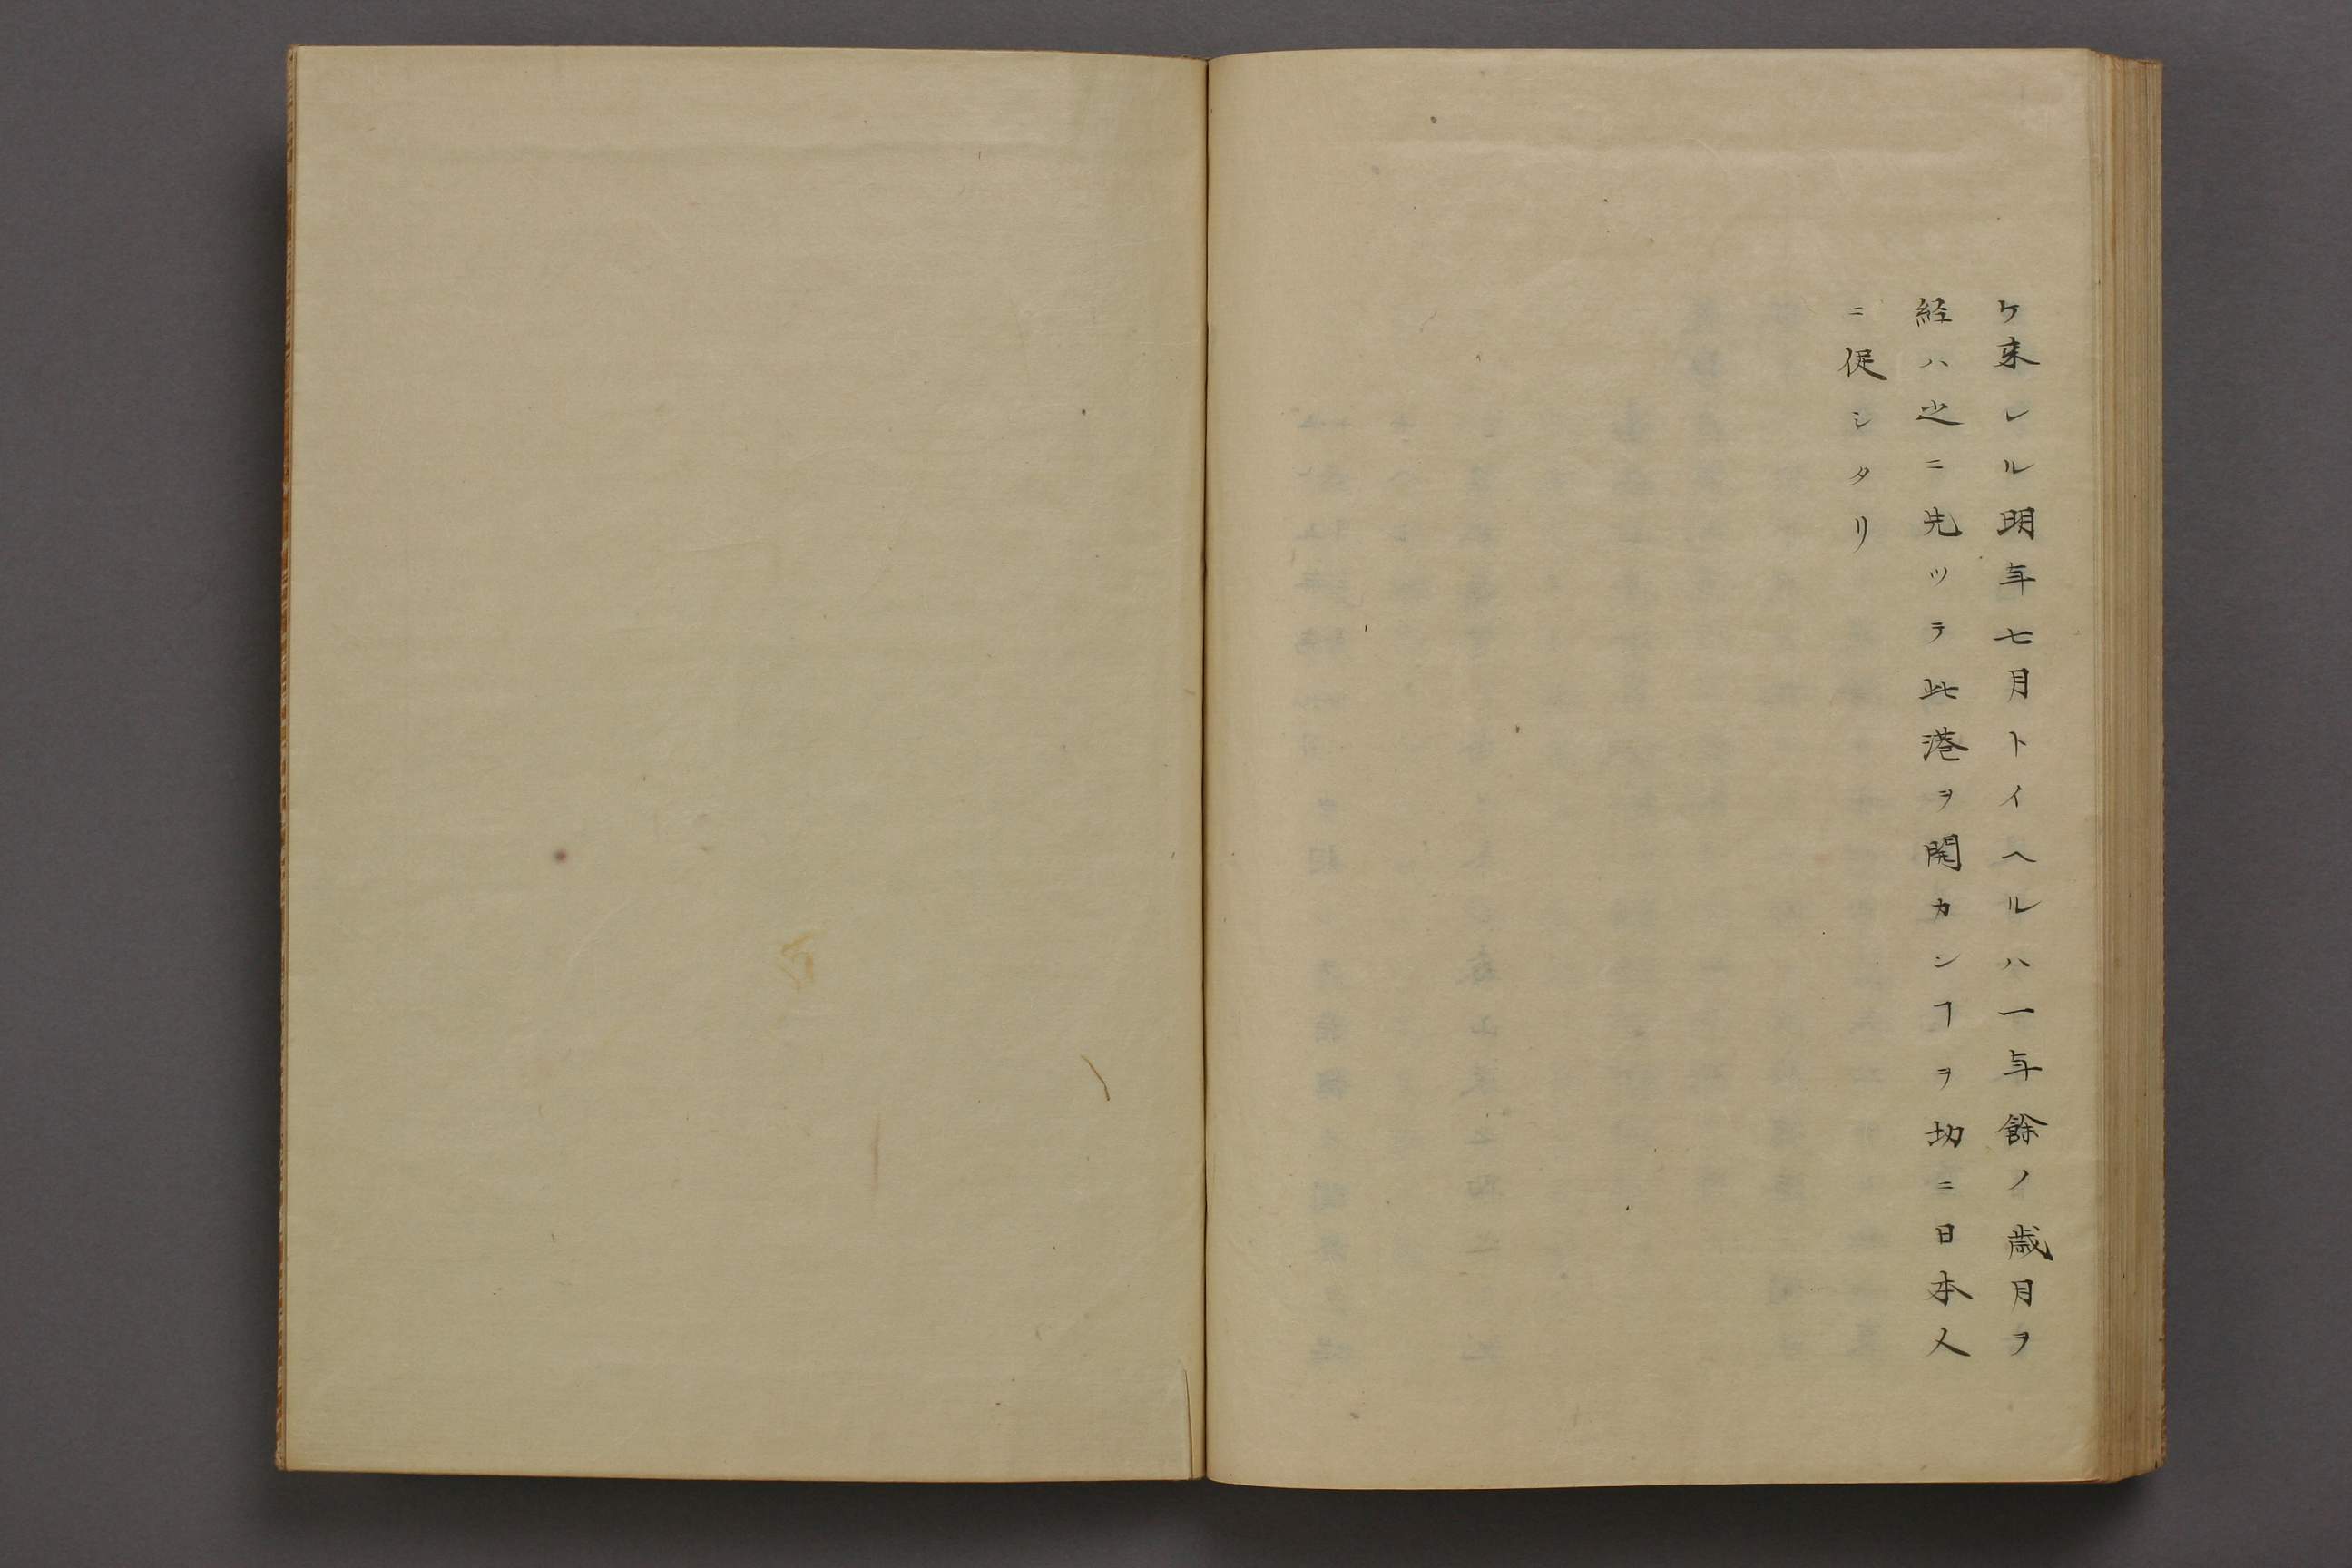 ケ来レル明年七月トイヘルハ一年餘ノ歳月ヲ
経ハ之ニ先ツテ此港ヲ開カンヿヲ切ニ日本人
ニ促シタリ